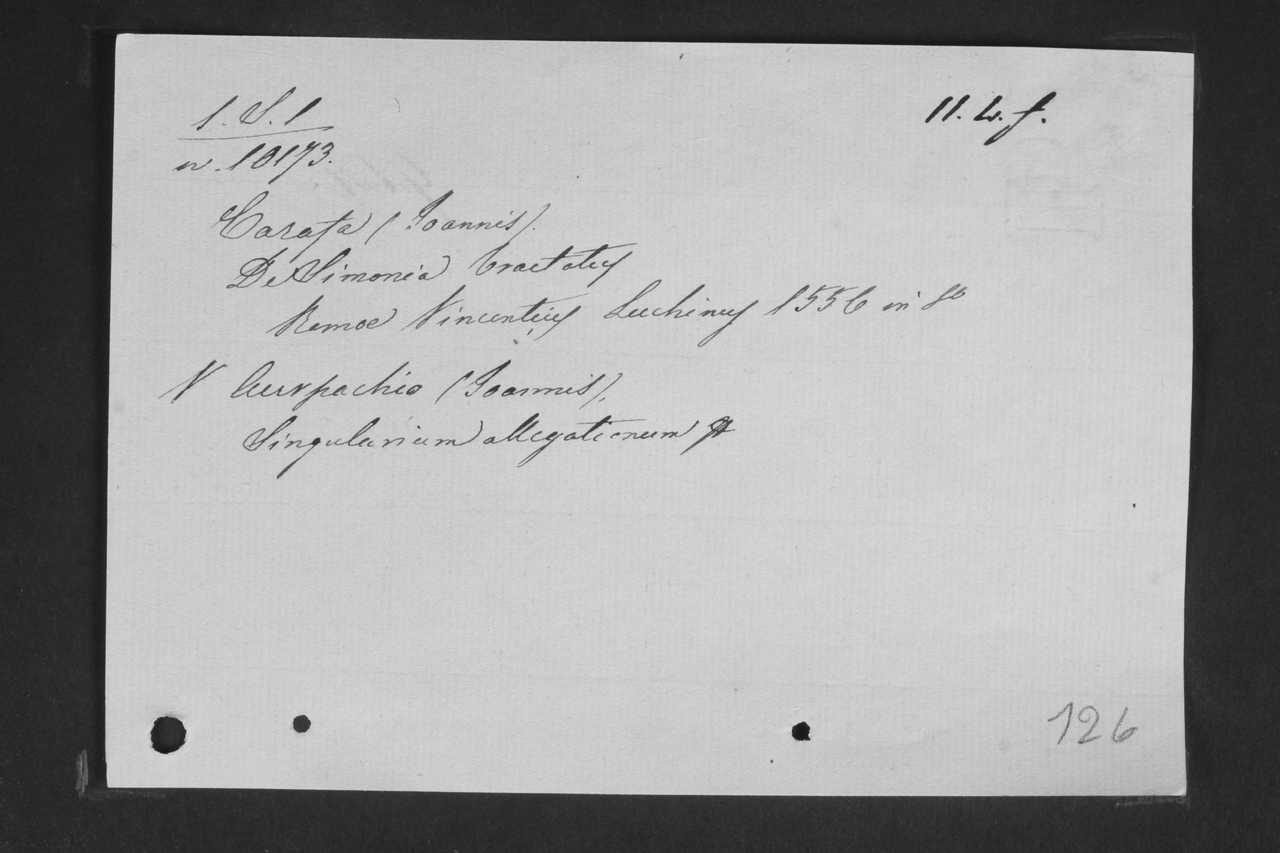 1. S. 1
n. 10173.
11. 4. f.
Carafa (Joannis).
De Simonia tractatus
Romae Vincentius Luchinus 1556 in 8º
V Aurpachio (Joannis).
Singularium allegationum
126